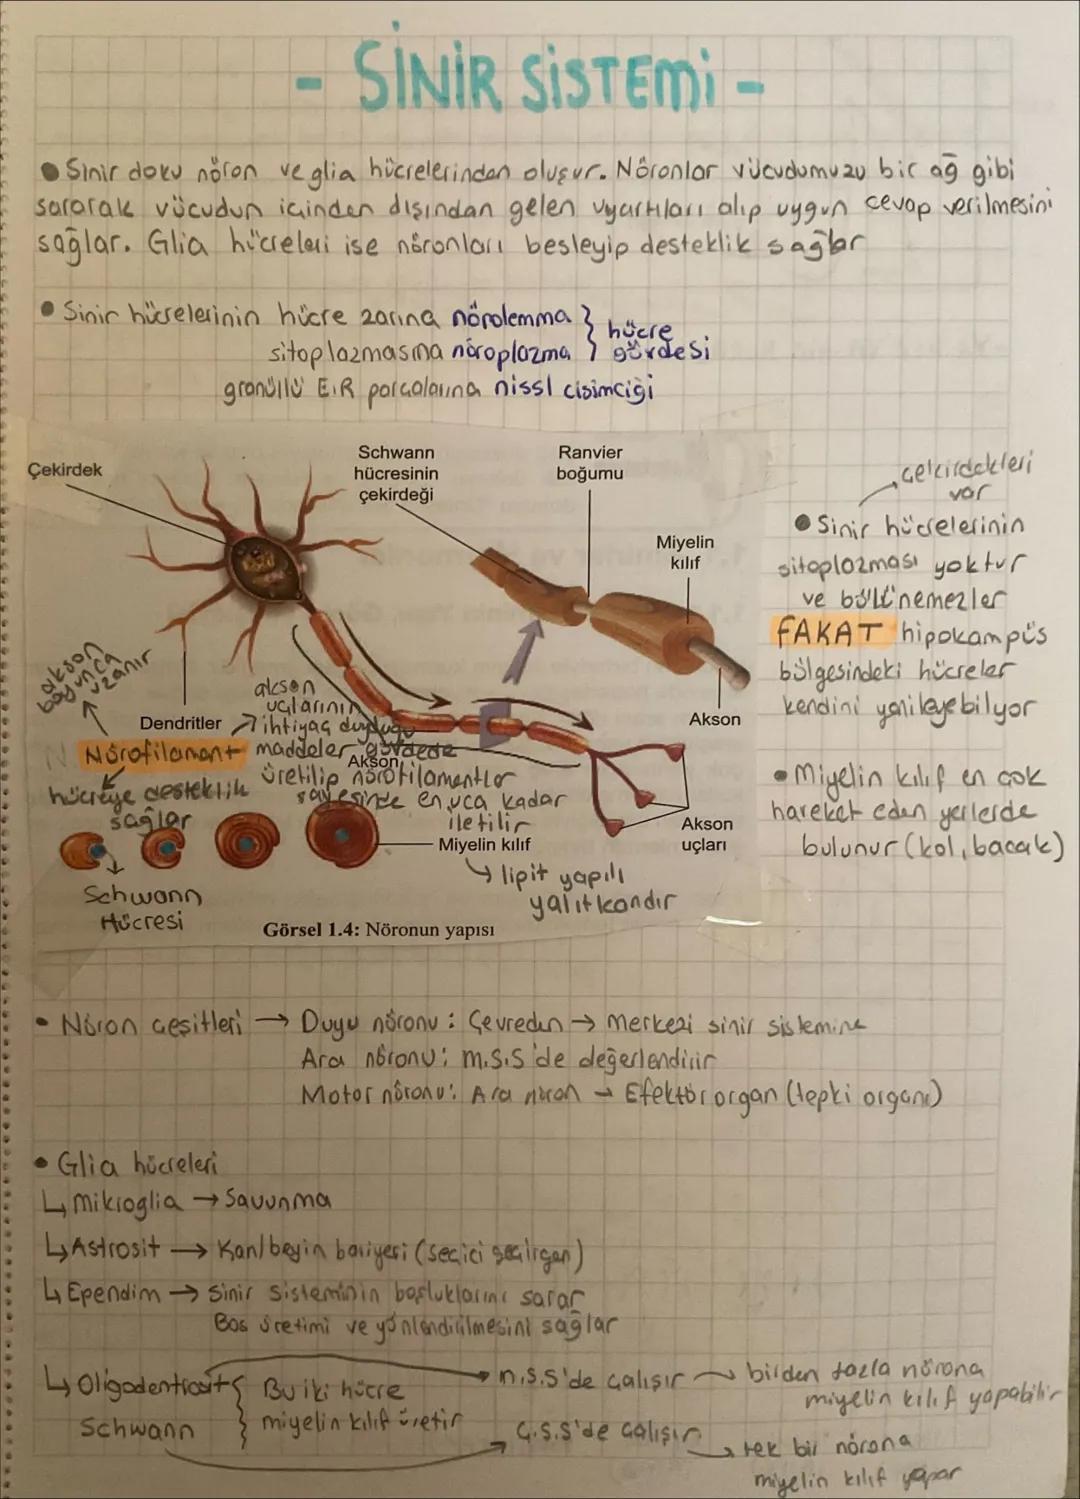 - SİNİR SİSTEMİ -
• Sinir doku nöron ve glia hücrelerinden oluşur. Nöronlar vücudumuzu bir ağ gibi
sararak vücudun içinden dışından gelen uyartıları alıp uygun cevap verilmesini
sağlar. Glia hücreleri ise nöronları besleyip desteklik sağlar
• Sinir hücrelerinin hücre zarına nörolemma } hücre
sitoplazmasına nöroplazma } gövdesi
granüllü E.R parçalarına nissl cisimciği
Çekirdek
Schwann
hücresinin
çekirdeği
Ranvier
boğumu
Miyelin
kılıf
Akson
Dendritler
Akson
Akson
uçları
Miyelin kılıf
akson
boyunca
uzanır
Nörofilament
hücreye desteklik
sağlar
akson
uçlarının
ihtiyaç duyduğu
maddeler gövdede
üretilip nörofilamentler
sayesinde en uca kadar
iletilir
Schwann
Hücresi
→ lipit yapılı
yalıtkandır
Görsel 1.4: Nöronun yapısı
çekirdekleri
var
• Sinir hücrelerinin
sitoplozması yoktur
ve bölünemezler
FAKAT hipokampüs
bölgesindeki hücreler
kendini yenileyebilyor
• Miyelin kılıf en çok
hareket eden yerlerde
bulunur (kol, bacak)
• Nöron çeşitleri → Duyu nöronu : Çevreden → merkezi sinir sistemine
Ara nöronu : m.S.S'de değerlendirir
Motor nöronu : Ara nöron → Efektör organ (tepki organı)
• Glia hücreleri
↳ Mikroglia → Savunma
↳ Astrosit → Kan/beyin bariyeri (seçici geçirgen)
↳ Ependim → Sinir sisteminin boşluklarını sarar
Bos üretimi ve yönlendirilmesini sağlar
↳ Oligodentrosit } Bu iki hücre → m.S.S'de çalışır → birden fazla nörona
miyelin kılıf yapabilir
Schwann } miyelin kılıf üretir → Ç.S.S'de çalışır → tek bir nörona
miyelin kılıf yapar